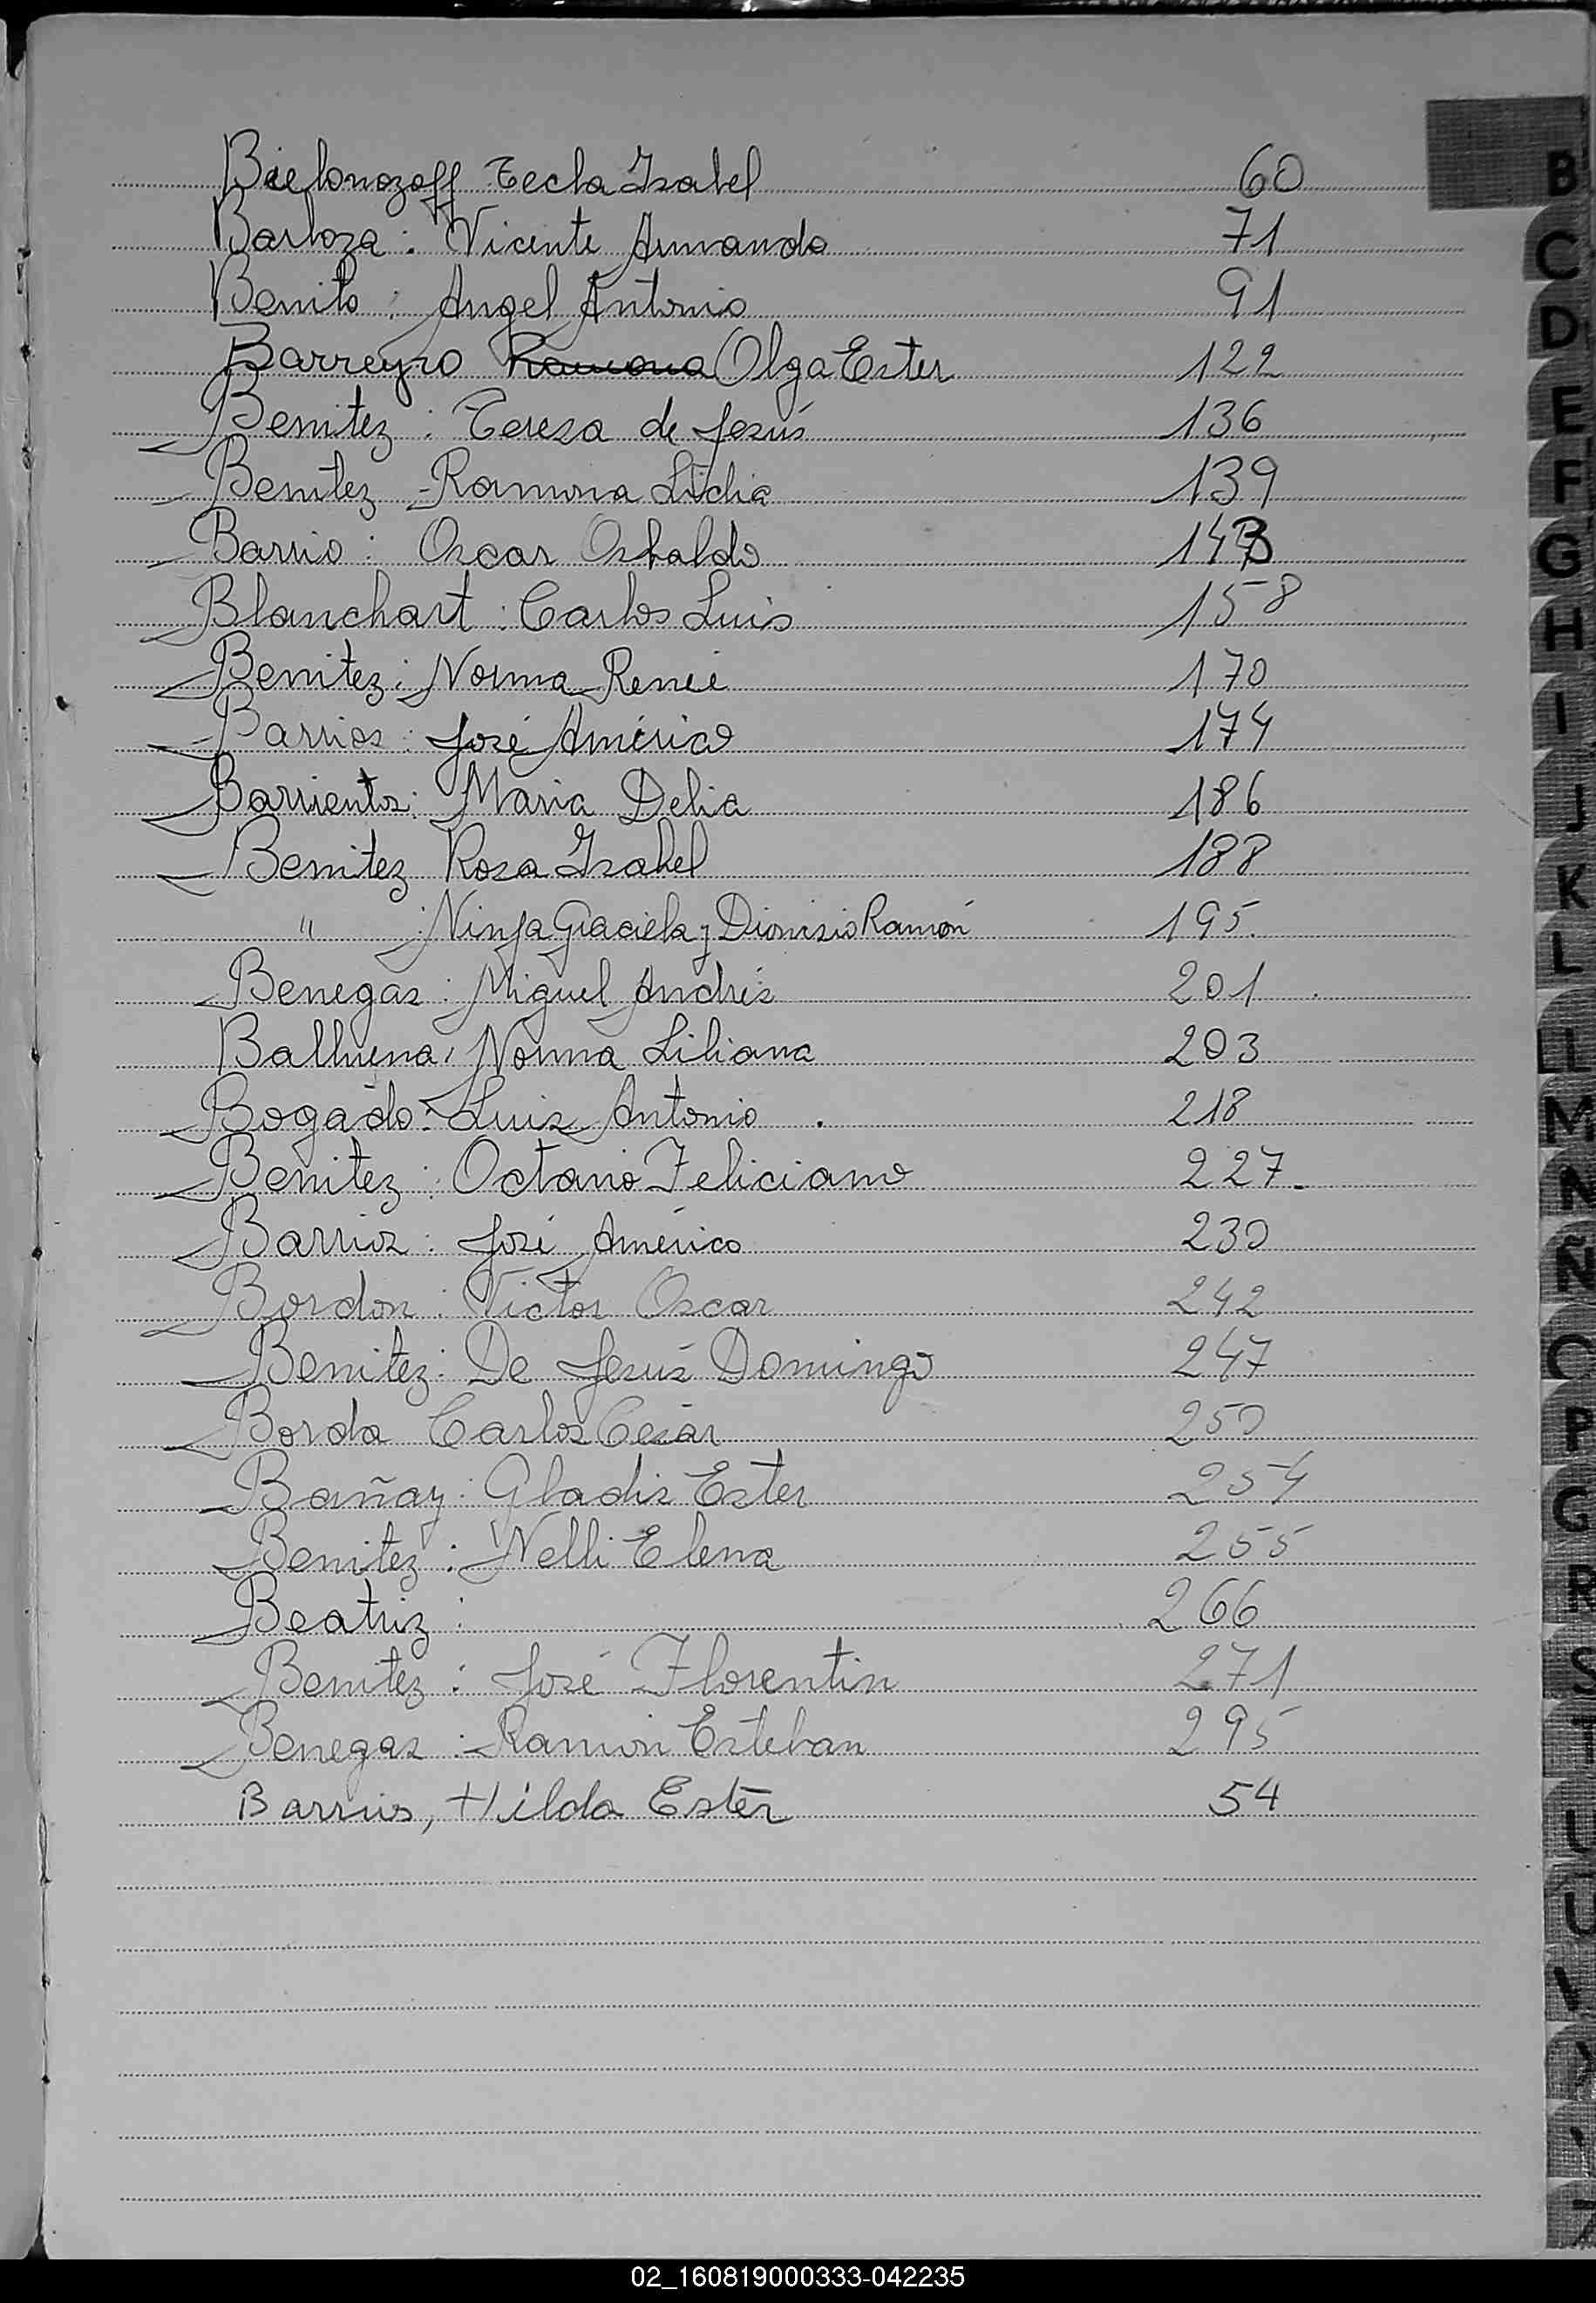 Bielonozoff Tecla Isabel 60
Barboza: Vicente Armando 71
Benito: Angel Antonio 91
Barreyro Ramona Olga Ester 122
Benitez: Teresa de Jesús 136
Benitez Ramona Lidia 139
Barrio: Oscar Osbaldo 143
Blanchart: Carlos Luis 158
Benitez: Norma Renée 170
Barrios: José Américo 174
Barrientos: Maria Delia 186
Benitez Rosa Isabel 188
" : Ninfa Graciela y Dionisio Ramón 195.
Benegas: Miguel Andrés 201
Balbuena: Norma Liliana 203
Bogado: Luis Antonio 218
Benitez: Octavio Feliciano 227.
Barrios: José Américo 230
Bordon: Victor Oscar 242
Benitez: De Jesús Domingo 247
Borda Carlos César 250
Bañay: Gladis Ester 254
Benitez: Nelli Elena 255
Beatriz: 266
Benitez: José Florentin 271
Benegas: Ramón Esteban 295
Barrios, Hilda Ester 54
B
C
D
E
F
G
H
I
J
K
L
M
N
Ñ
O
P
R
S
U
02_160819000333-042235